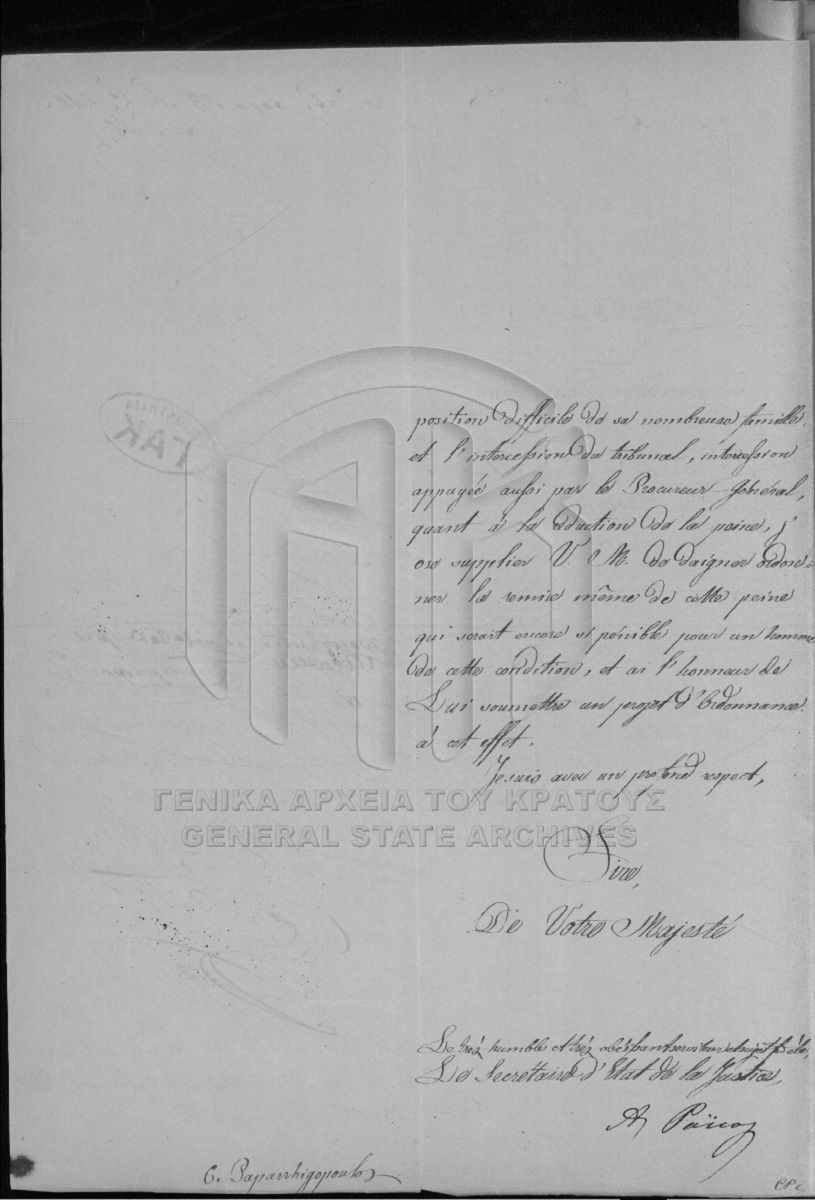 position difficile de sa nombreuse famille,
et l'intercession du tribunal, intercession
appuyée aussi par le Procureur-Général,
quant à la réduction de la peine, j'
ose supplier V. M. de daigner ordon-
ner la remise même de cette peine
qui serait encore si pénible pour un homme
de cette condition, et ai l'honneur de
Lui soumettre un projet d'Ordonnance
à cet effet.
Je suis avec un profond respect,
Sire,
De Votre Majesté
Le tréz humble et tréz obéissant serviteur et sujet fidèle,
Le Secrétaire d'Etat de la Justice,
A Païcos
C. Paparrhigopoulos
ΓΑΚ
ΓΕΝΙΚΑ ΑΡΧΕΙΑ ΤΟΥ ΚΡΑΤΟΥΣ
GENERAL STATE ARCHIVES